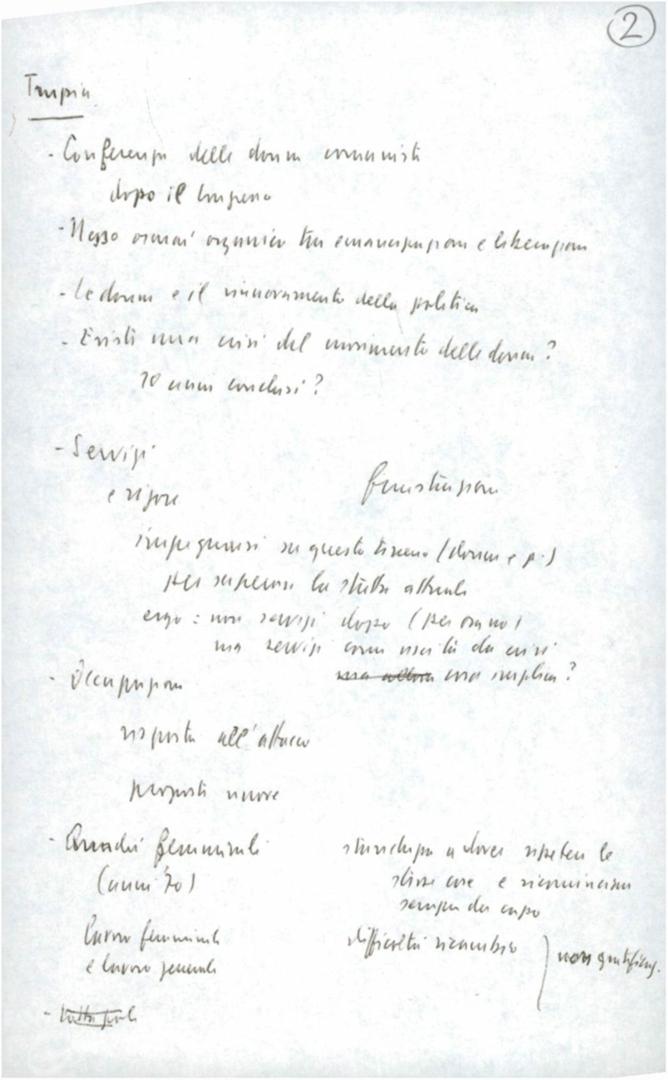 2
Trupia
- Conferenza delle donne comuniste
dopo il Congresso
- Nesso ormai organico tra emancipazione e liberazione
- Le donne e il rinnovamento della politica
- Esiste una crisi del movimento delle donne?
70 anni conclusi?
- Servizi
e rigore
frustrazione
impegnarsi su questo terreno (donne e p.)
per superare la stretta attuale
ergo: non servizi dopo (per ora no)
ma servizi come uscita da crisi
cosa implica?
- Occupazione
risposta all'attacco
proposte nuove
- Quadri femminili
(anni '70)
stanchezza a dover ripetere le
stesse cose e ricominciare
sempre da capo
lavoro femminile
e lavoro generale
difficoltà ricambio
non gratificaz.
-